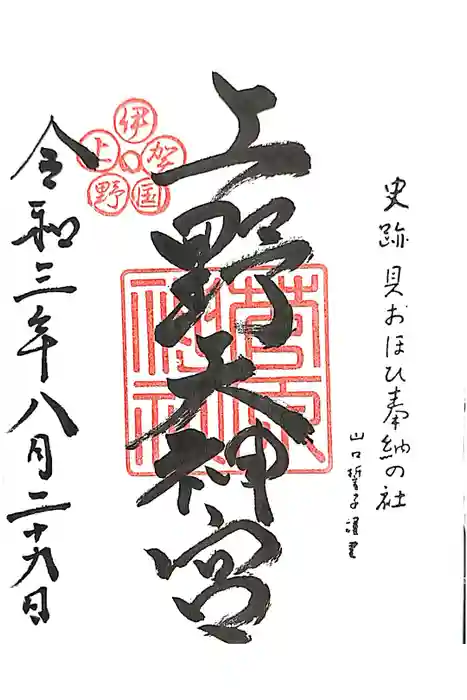 史跡 貝おほひ奉納の社
山口誓子謹書
上野天神宮
伊賀国上野
菅原神社
令和三年八月二十九日